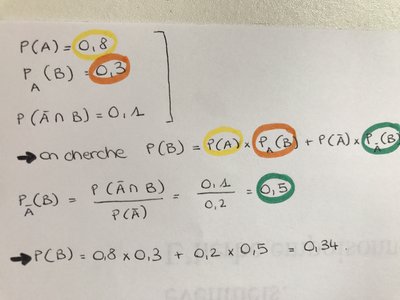 P(A) = 0,8
P_A(B) = 0,3
P(Ā ∩ B) = 0,1
→ on cherche P(B) = P(A) × P_A(B) + P(Ā) × P_Ā(B)
P_Ā(B) = P(Ā ∩ B) / P(Ā) = 0,1 / 0,2 = 0,5
→ P(B) = 0,8 × 0,3 + 0,2 × 0,5 = 0,34